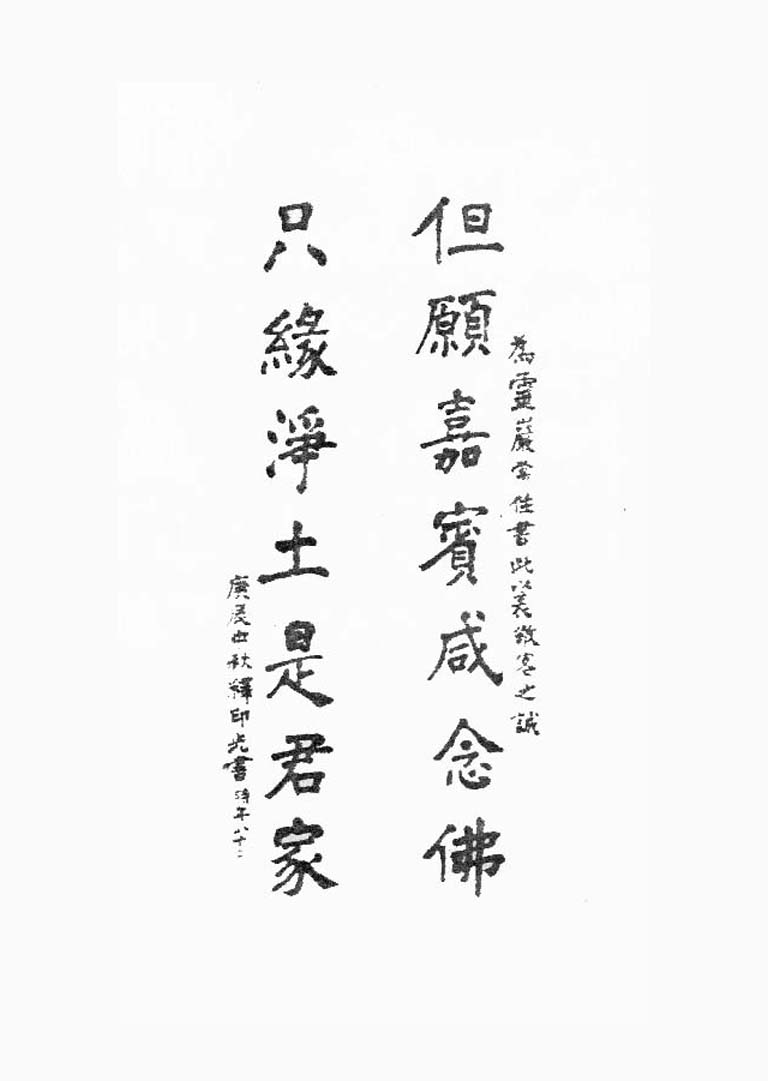 為靈巖常住書此以表敬客之誠
但願嘉賓咸念佛
只緣淨土是君家
庚辰中秋釋印光書時年八十